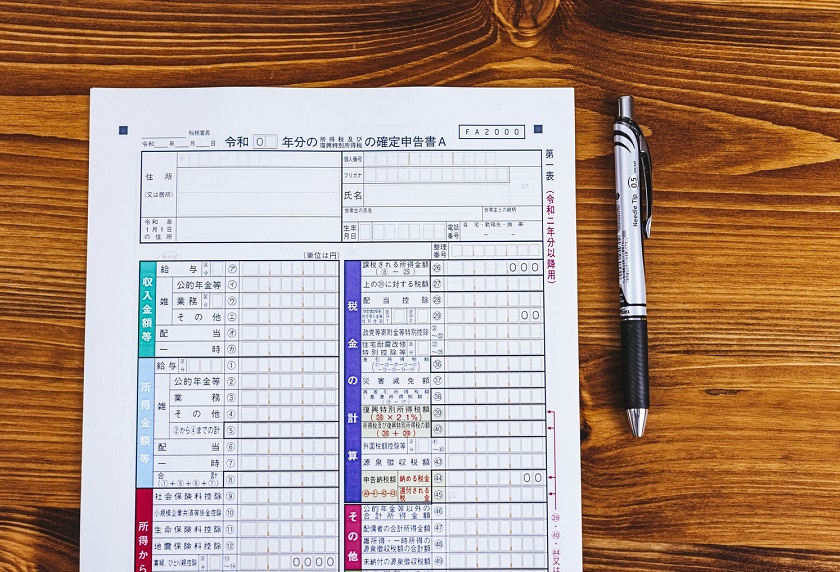 税務署長
令和 年 月 日
令和 0 年分の 所得税及び 復興特別所得税 の確定申告書A
FA2000
第一表
(令和二年分以降用)
住所
(又は居所)
令和 年
1月1日
の住所
個人番号
フリガナ
氏名
世帯主の氏名
世帯主との続柄
生年
月日
電話
番号
自宅・勤務先・携帯
整理
番号
(単位は円)
収入金額等
給与 区分 ㋐
雑
公的年金等 ㋑
業務 区分 ㋒
その他 ㋓
配当 ㋔
一時 ㋕
所得金額等
給与 区分 ①
雑
公的年金等 ②
業務 ③
その他 ④
②から④までの計 ⑤
配当 ⑥
一時 ⑦
合計
(①+⑤+⑥+⑦) ⑧
所得から
社会保険料控除 ⑨
小規模企業共済等掛金控除 ⑩
生命保険料控除 ⑪
地震保険料控除 ⑫
寡婦、ひとり親控除 区分 0000
税金の計算
課税される所得金額
(⑧-㉕) ㉖ 000
上の㉖に対する税額 ㉗
配当控除 ㉘
区分 ㉙ 00
政党等寄附金等特別控除
住宅耐震改修
特別控除等 区分
差引所得税額 ㊱
災害減免額 ㊲
再差引所得税額
(基準所得税額) ㊳
復興特別所得税額
(㊳×2.1%) ㊴
所得税及び復興特別所得税の額
(㊳+㊴) ㊵
外国税額控除等 区分
源泉徴収税額 ㊸
申告納税額 納める税金 ㊹ 00
還付される税金 ㊺
その他
公的年金等以外の
合計所得金額 ㊻
配偶者の合計所得金額 ㊼
雑所得・一時所得の
源泉徴収税額の合計額 ㊽
未納付の源泉徴収税額 ㊾
㊴・㊵・㊹又は
Needle Tip 0.5